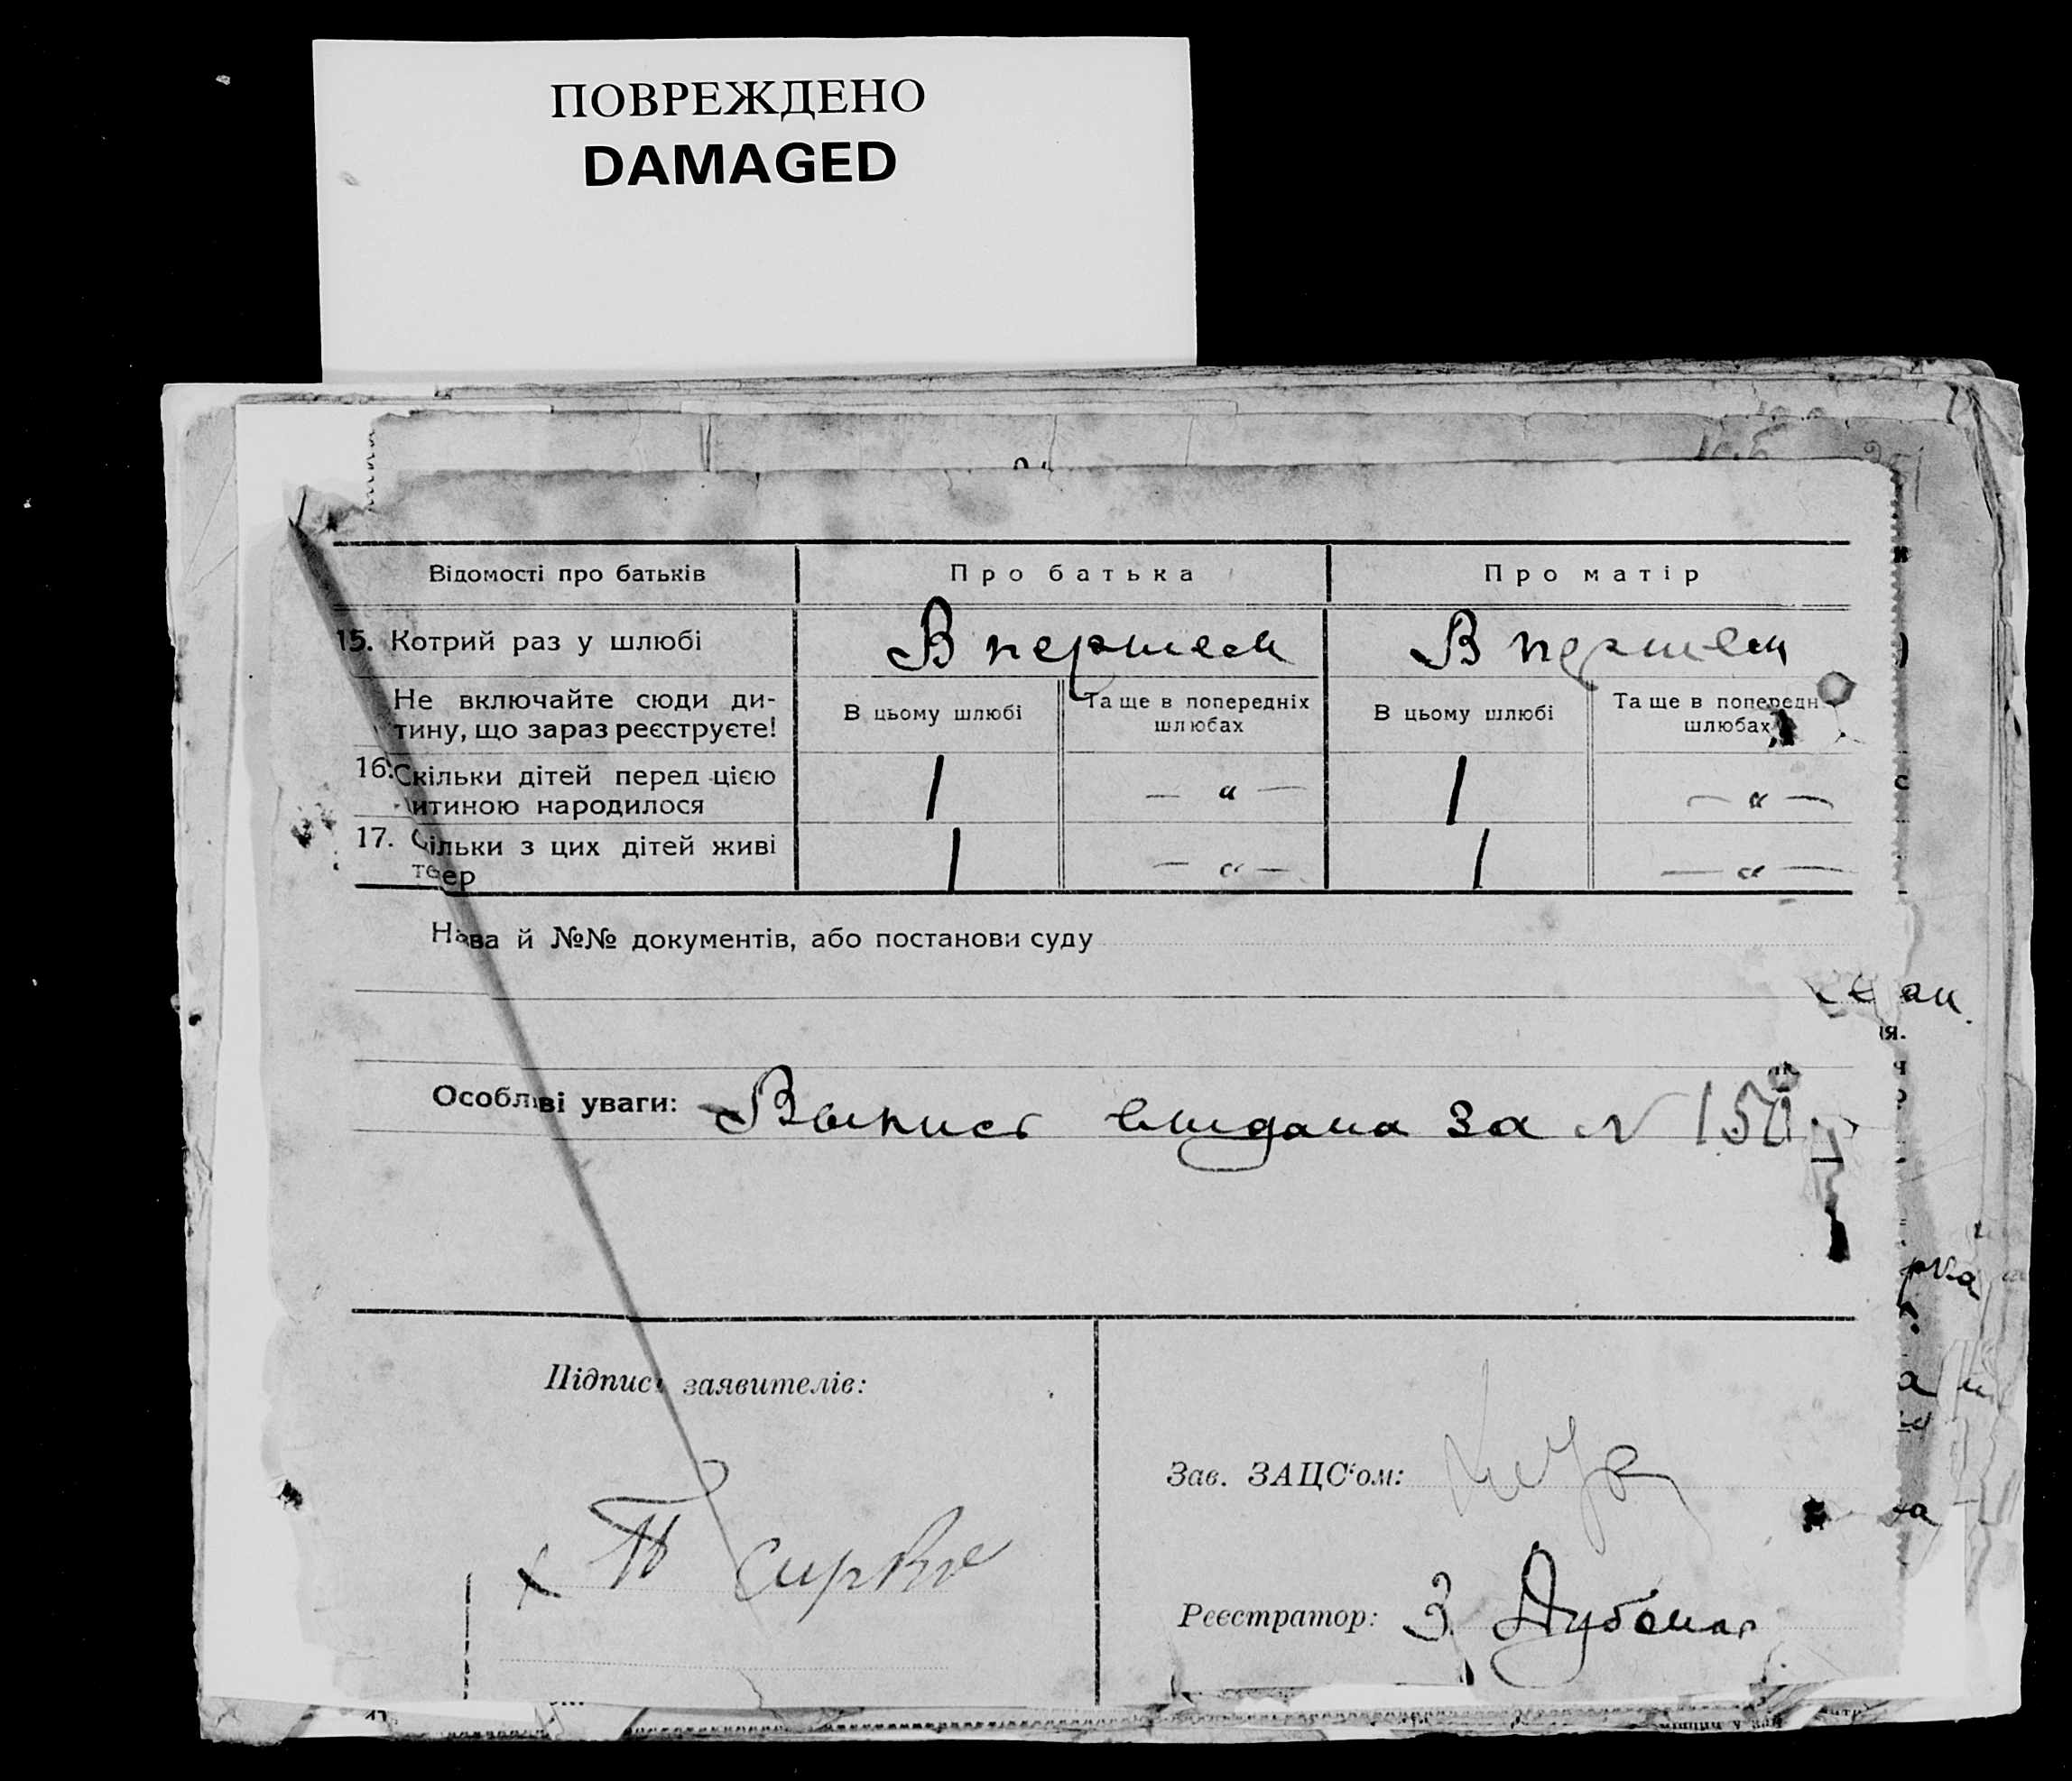 ПОВРЕЖДЕНО
DAMAGED
Відомості про батьків
Про батька
Про матір
15. Котрий раз у шлюбі
В першем
В першем
Не включайте сюди ди-
тину, що зараз реєструєте!
В цьому шлюбі
Та ще в попередніх
шлюбах
В цьому шлюбі
Та ще в попередн
шлюбах
16. Скільки дітей перед цією
итиною народилося
1
— " —
1
— " —
17. Скільки з цих дітей живі
тепер
1
— " —
1
— " —
Назва й №№ документів, або постанови суду
Особливі уваги: Выпись выдана за N 150
Підписи заявителів:
Зав. ЗАЦС'ом:
Реєстратор: З